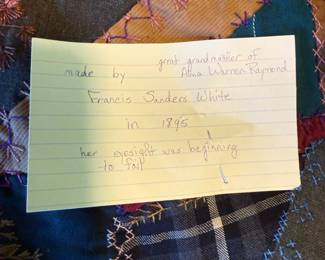 great grandmother of
made by Alma Warren Raymond
Francis Sanders White
in 1895
her eyesight was beginning
to fail